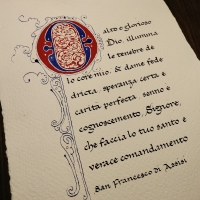 O alto e glorioso
Dio, illumina
le tenebre de
lo core mio, & dame fede
dricta, speranza certa e
carita perfecta, senno e
cognoscemento, Signore,
che faccia lo tuo santo e
verace comandamento
San Francesco di Assisi